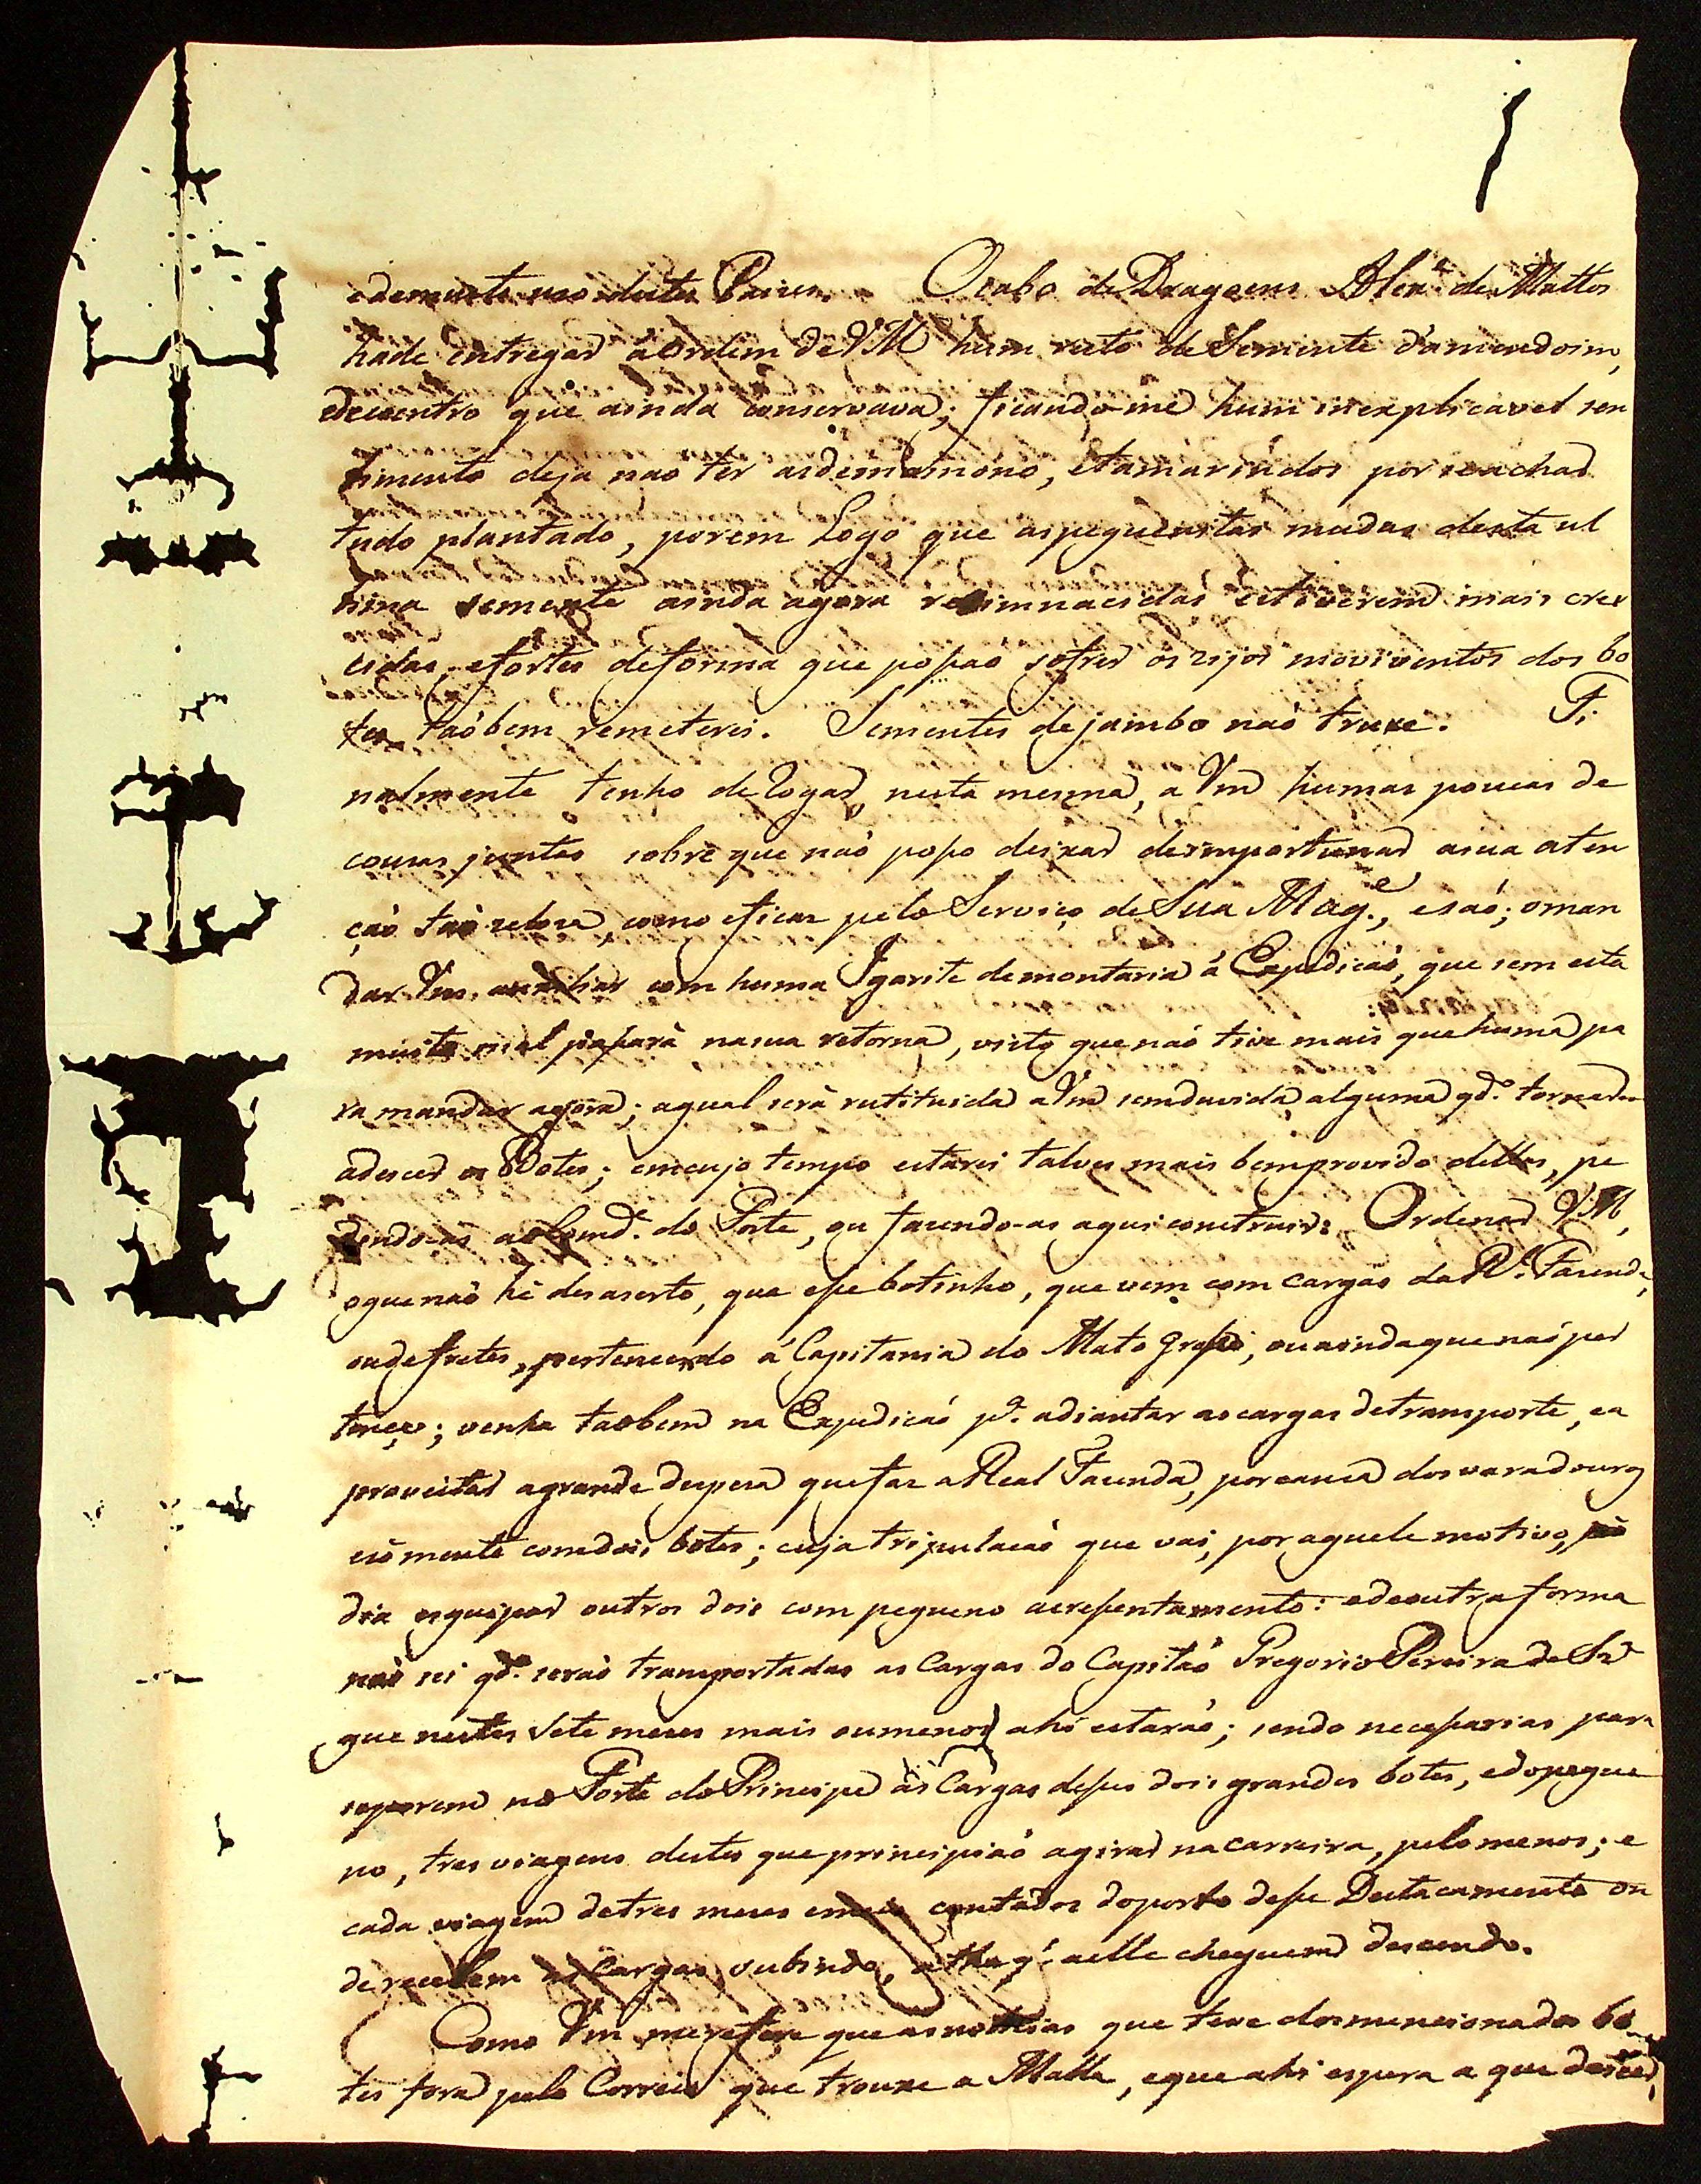 destes Paizes. O cabo de Dragoens Alex.e de Mattos
hade entregar á ordem de VM hum resto de Semente d'amendoim,
e de coentro que ainda conservava; ficando-me hum inexplicavel sen
timento de ja nao ter as de mamono, e tamarindos por se achar
tudo plantado, porem Logo que as pequenitas mudas desta ul
tima semente ainda agora resimnacidas estiverem mais cres
cidas, e fortes de forma que poßaó sofrer os rijos movimentos dos bo
tes taóbem remeterei. Sementes de jambo naó truxe. Fi
nalmente tenho de Rogar, nesta mesma, a Vm humas poucas de
cousas juntas sobre que naó poßo deixar de importunar a sua aten
çaó taó zeloza como eficaz pelo Serviço de Sua Mag.e, e saó; o man
dar Vm. auxiliar com huma Igarite de montaria á Expediçaó, que sem esta
muito mal paßará na sua retorna, visto que naó tive mais que huma pa
ra mandar agora; a qual será restituida a Vm sem duvida alguma qd.o tornarem
a descer os Botes; em cujo tempo estarei talves mais bem provido dellas, pe
dindo-as ao Comd.e do Forte, ou fazendo-as aqui construir: Ordenar VM,
o que naó hé desaserto, que eße botinho, que vem com cargas da R.l Fazenda,
ou de fretes, pertencendo á Capitania do Mato Großo, ou ainda que naó per
tença; venha taobem na Expediçaó p.a adiantar as cargas de transporte, e a
proveitar a grande despeza que faz a Real Fazenda, por causa dos varadouros
só mente com dois botes; cuja tripulaçaó que vai, por aquele motivo, po
dia esquipar outros dois com pequeno acreßentamento: e de outra forma
naó sei qd.o seraó transportadas as Cargas do Capitaó Gregorio Pereira de Sz.a
que nestes Sete mezes mais ou menos ahi estaraó; sendo neceßarias para
se porem no Forte do Principe as Cargas deßes dois grandes botes, e do peque
no, tres viagens destes que principiaó a girar na carreira, pelo menos; e
cada viagem de tres mezes e meio contados do porto deße Destacamento on
de recebem as Cargas, subindo, athe q' a elle cheguem descendo.
Como Vm me refere que as noticias que teve dos mencionados bo
tes fora pelo Correio que trouxe a Malla, e que ahi espera a que descer,